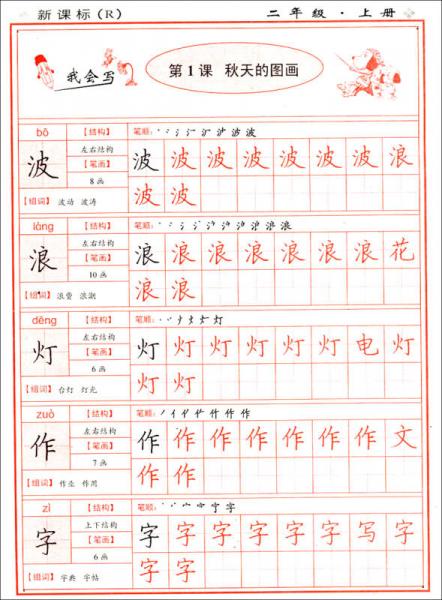 新课标(R)
二年级·上册
我会写
第1课 秋天的图画
bō 【结构】 笔顺: 丶 冫 氵 波
左右结构
波 【笔画】 波 波 波 波 波 波 波 浪
8画
【组词】 波动 波涛 波 波
làng 【结构】 笔顺: 丶 冫 氵 浪
左右结构
浪 【笔画】 浪 浪 浪 浪 浪 浪 浪 花
10画
【组词】 浪费 浪潮 浪 浪
dēng 【结构】 笔顺: 火 灯
左右结构
灯 【笔画】 灯 灯 灯 灯 灯 灯 电 灯
6画
【组词】 台灯 灯光 灯 灯
zuò 【结构】 笔顺: 丿 亻 作
左右结构
作 【笔画】 作 作 作 作 作 作 作 文
7画
【组词】 作业 作用 作 作
zì 【结构】 笔顺: 丶 宀 字
上下结构
字 【笔画】 字 字 字 字 字 字 写 字
6画
【组词】 字典 字帖 字 字